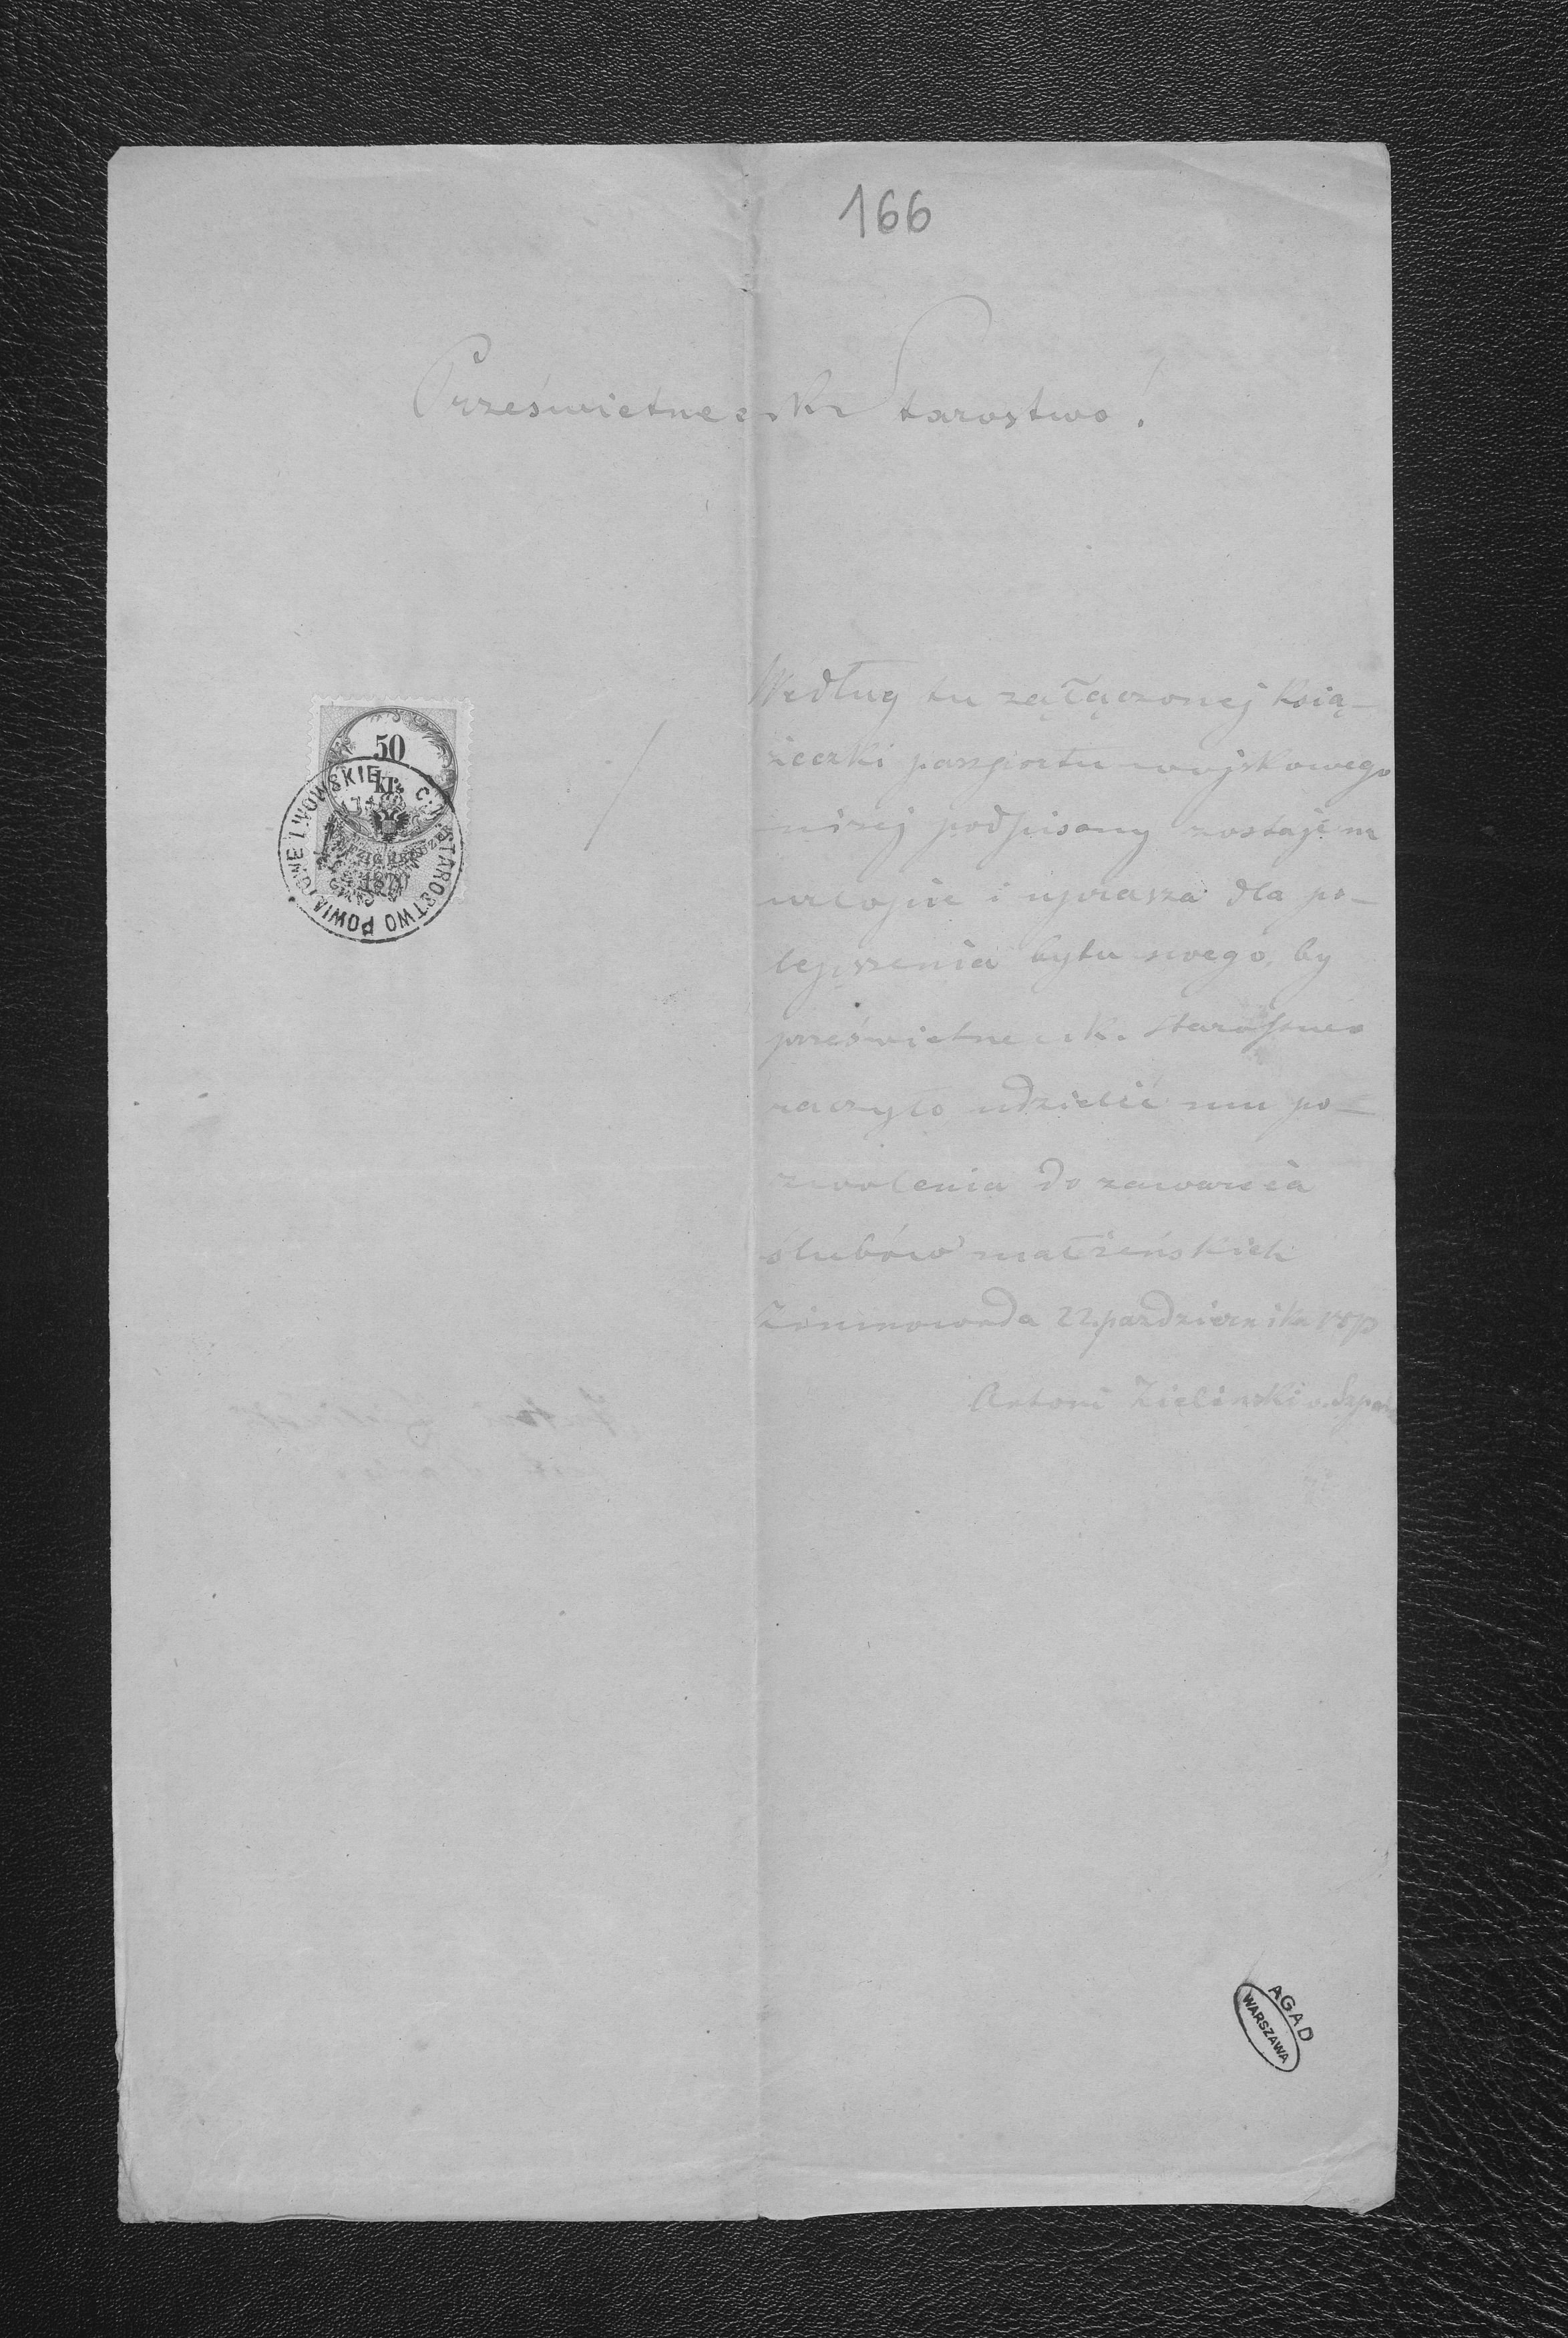 166
Prześwietne c. k. Starostwo!
Według tu załączonej Ksią-
żeczki paszportu wojskowego
niżej podpisany zostaje na
urlopie i uprasza dla po-
lepszenia bytu swego, by
prześwietne c. k. Starostwo
raczyło udzielić mu po-
zwolenia do zawarcia
ślubów małżeńskich
Zimnowoda 22 pazdziernika
Antoni Zieliński
50
kr.
1870
C. K. STAROSTWO POWIATOWE LWOWSKIE
AGAD
WARSZAWA